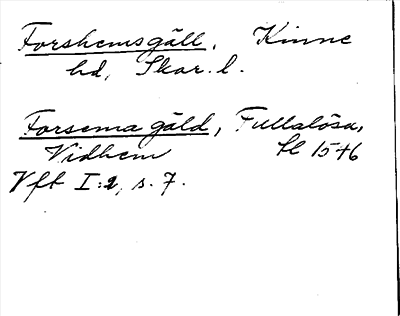 Forshemsgäll, Kinne
hd, Skar. l.
Forsema gäld, Fullalösa,
Vidhem fl 1546
Vft I:2, s. 7.